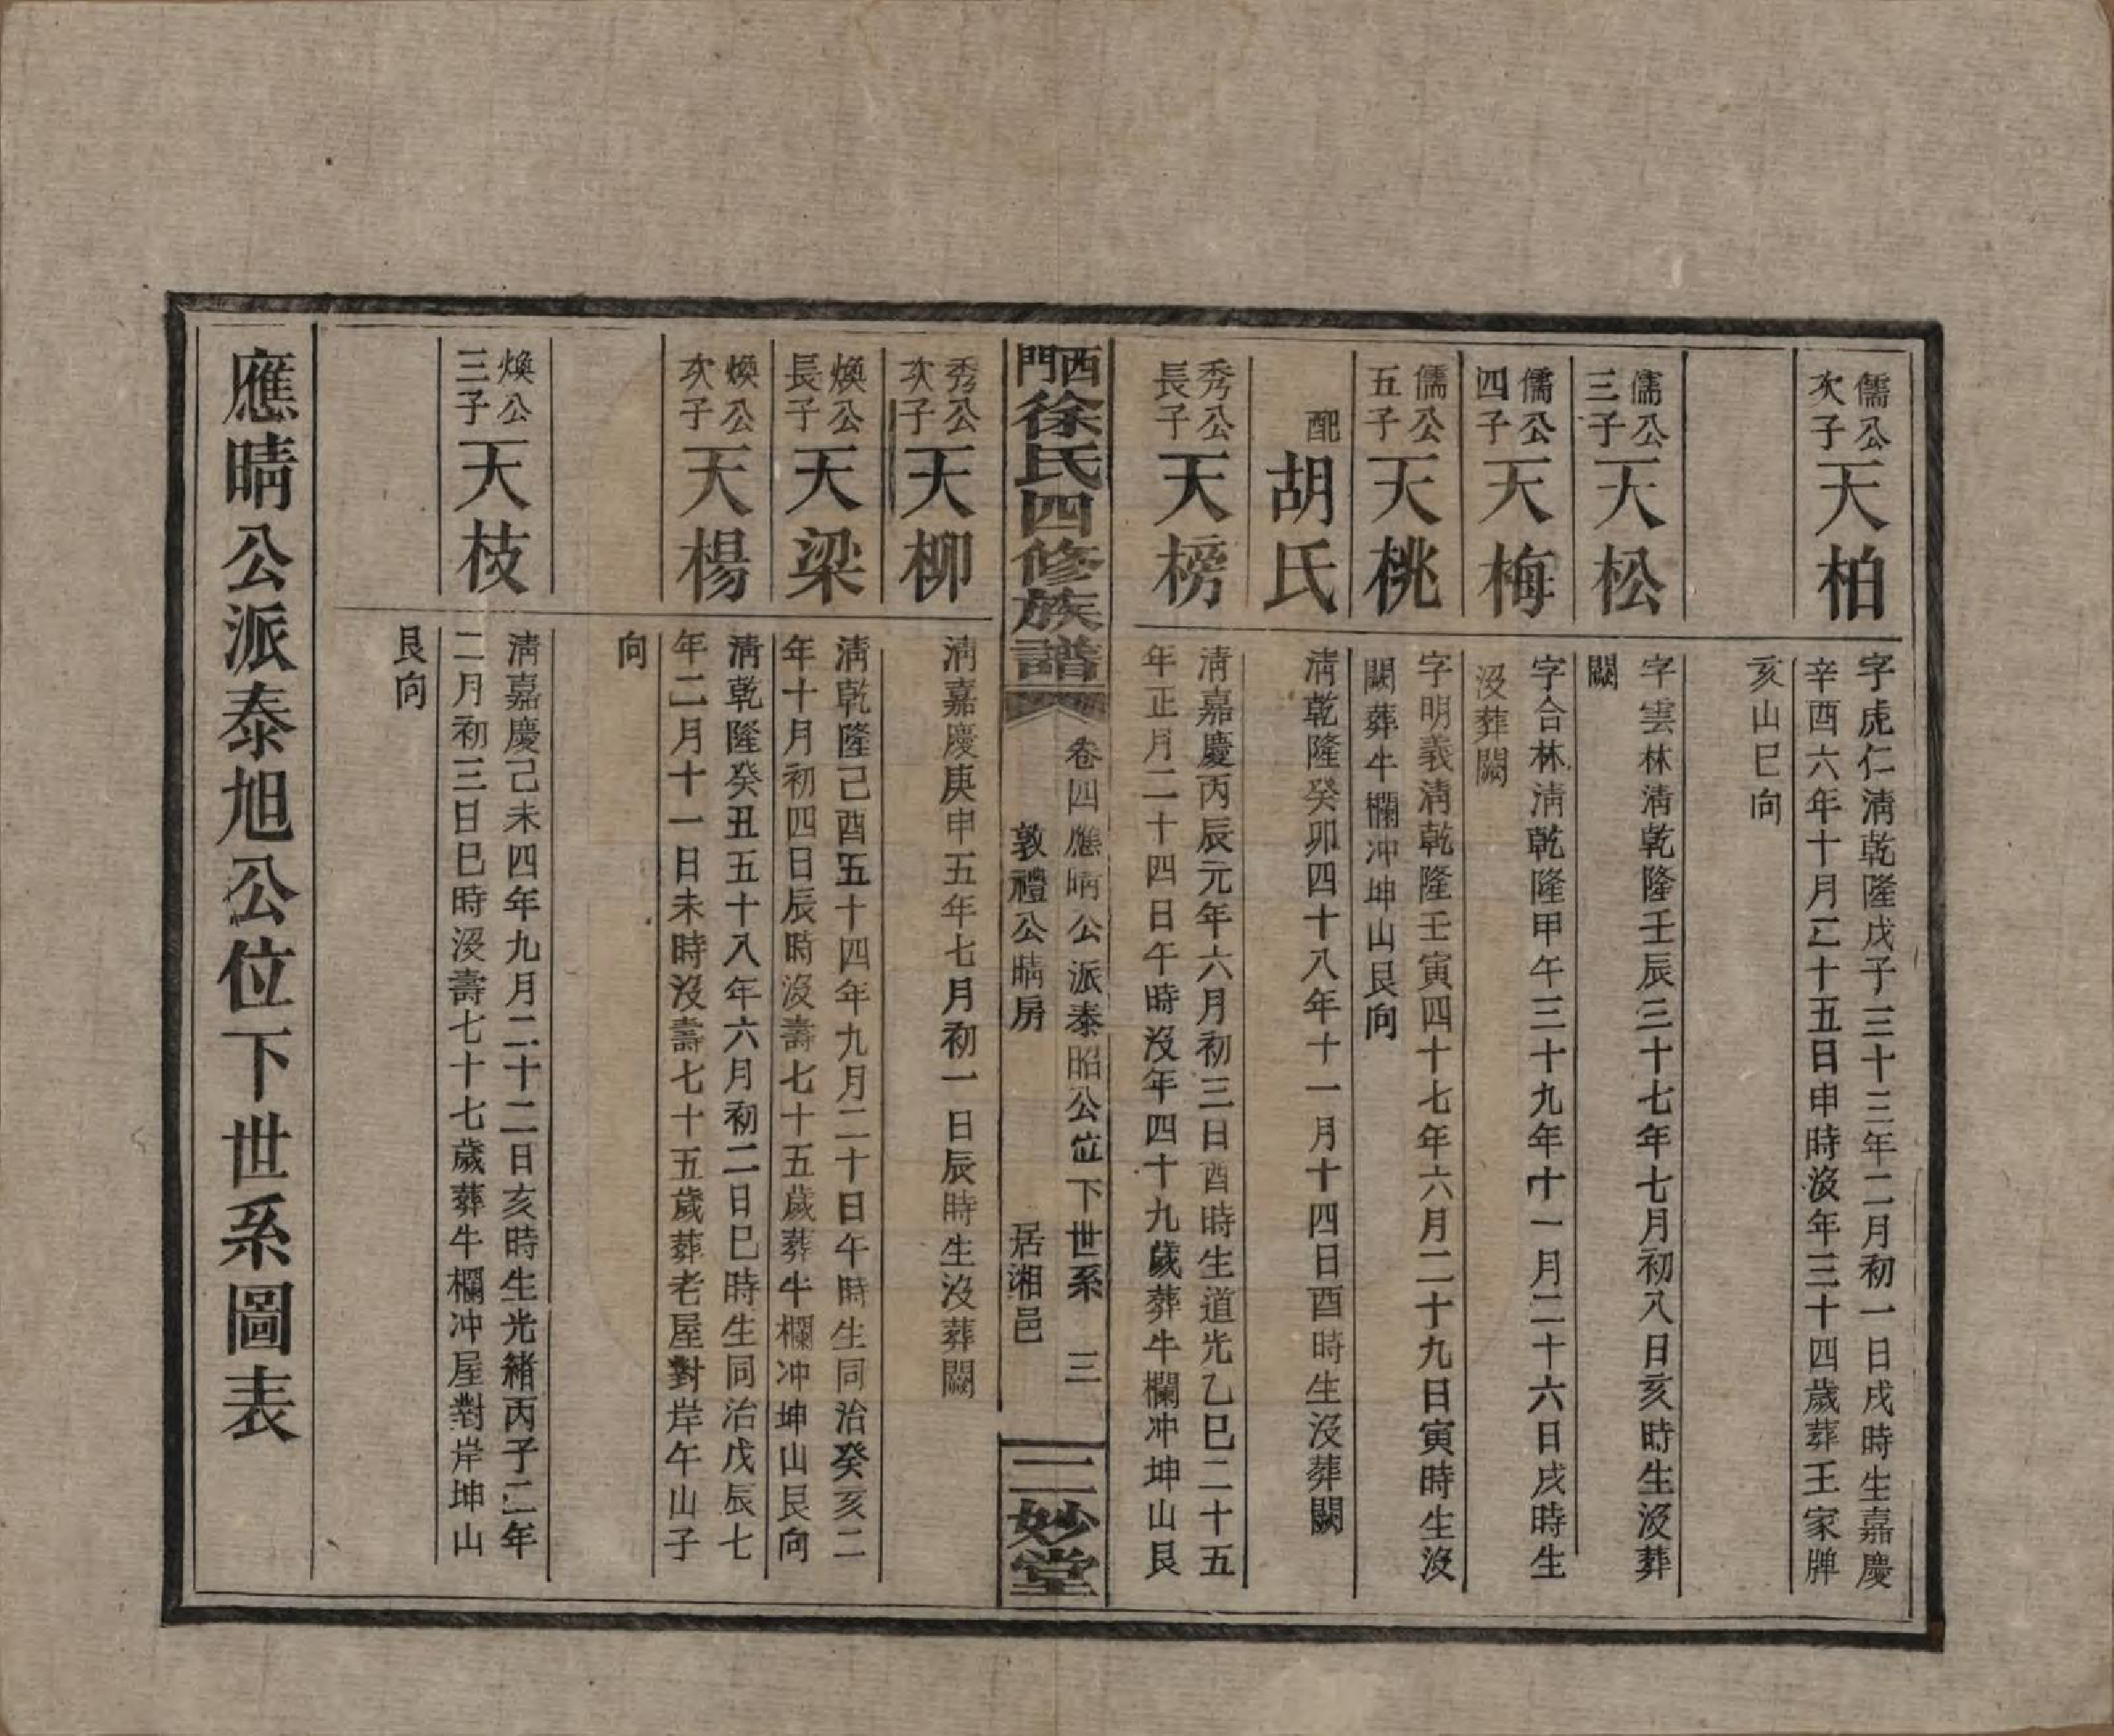 儒公次子天柏
字虎仁淸乾隆戊子三十三年二月初一日戌時生嘉慶
辛酉六年十月二十五日申時沒年三十四歲葬王家牌
亥山巳向
儒公三子天松
字雲林淸乾隆壬辰三十七年七月初八日亥時生沒葬
闕
儒公四子天梅
字合林淸乾隆甲午三十九年十一月二十六日戌時生
沒葬闕
儒公五子天桃
字明義淸乾隆壬寅四十七年六月二十九日寅時生沒
闕葬牛欄冲坤山艮向
配胡氏
淸乾隆癸卯四十八年十一月十四日酉時生沒葬闕
秀公長子天榜
淸嘉慶丙辰元年六月初三日酉時生道光乙巳二十五
年正月二十四日午時沒年四十九歲葬牛欄冲坤山艮
西門徐氏四修族譜
卷四應晴公派泰昭公位下世系 三
敦禮公晴房 居湘邑
三妙堂
秀公次子天柳
淸嘉慶庚申五年七月初一日辰時生沒葬闕
煥公長子天梁
淸乾隆己酉五十四年九月二十日午時生同治癸亥二
年十月初四日辰時沒壽七十五歲葬牛欄冲坤山艮向
煥公次子天楊
淸乾隆癸丑五十八年六月初二日巳時生同治戊辰七
年二月十一日未時沒壽七十五歲葬老屋對岸午山子
向
煥公三子天枝
淸嘉慶己未四年九月二十二日亥時生光緖丙子二年
二月初三日巳時沒壽七十七歲葬牛欄冲屋對岸坤山
艮向
應晴公派泰旭公位下世系圖表